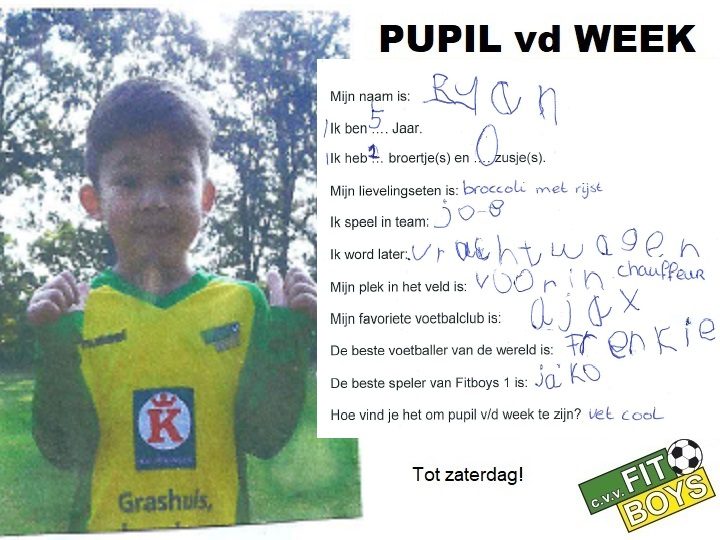 PUPIL vd WEEK
Mijn naam is: Ryan
Ik ben 5 .... Jaar.
Ik heb 1 ... broertje(s) en 0 .... zusje(s).
Mijn lievelingseten is: broccoli met rijst
Ik speel in team: jo-8
Ik word later: vrachtwagen
chauffeur
Mijn plek in het veld is: voorin
Mijn favoriete voetbalclub is: ajax
De beste voetballer van de wereld is: Frenkie
De beste speler van Fitboys 1 is: jako
Hoe vind je het om pupil v/d week te zijn? vet cool
hummel
K
Grashuis,
Tot zaterdag!
c.v.v. FIT
BOYS